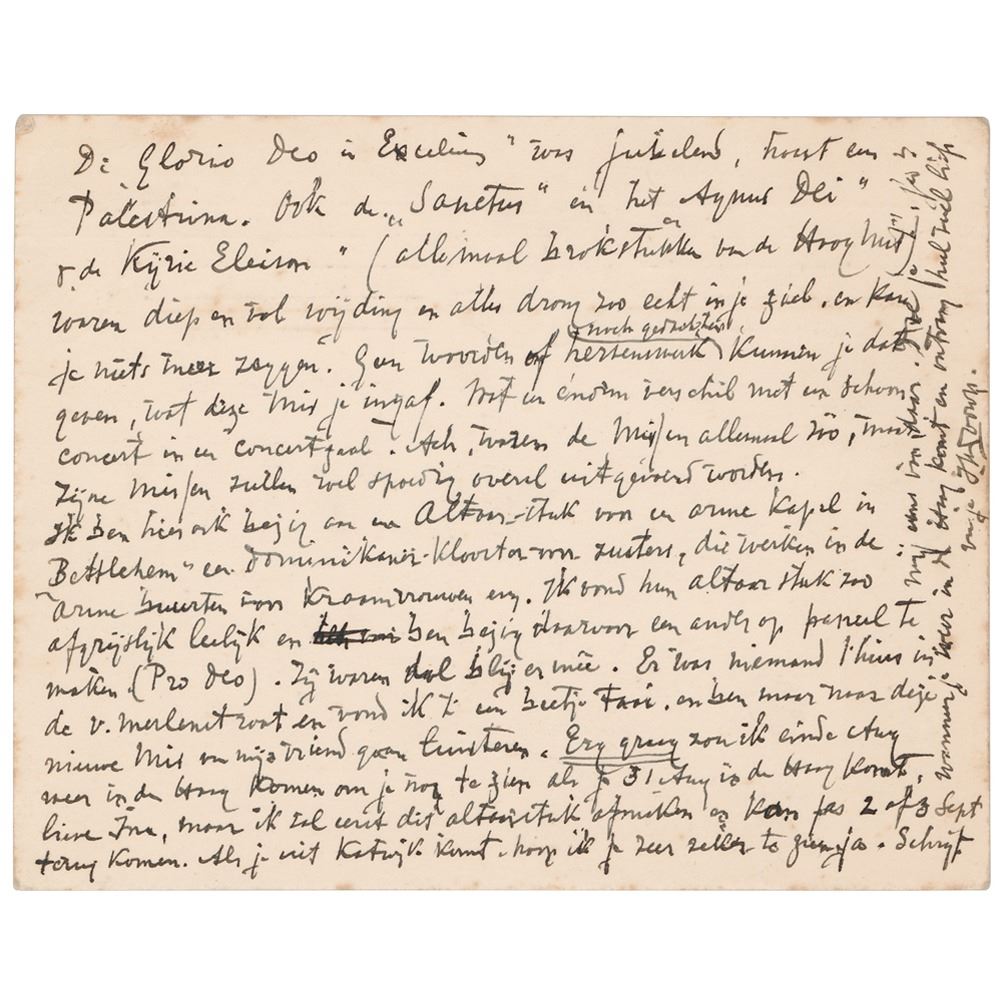 De Gloria Deo in Excelsius" was jubelend, haast een
Palestrina. Ook de „Sanctus" en het Agnus Dei"
& de Kÿrie Eleison" (allemaal brokstukken van de Hoogmis)
waren diep en vol wijding en alles drong zoo echt in je ziel. en kan
je niets meer zeggen. Geen woorden of hersenwerk (noch gedachten) kunnen je dat
geven, wat deze Mis je ingaf. Wat een énorm verschil met een schoon
concert in een concertzaal. Ach, waren de Missen allemaal zóó, maar
zijne Missen zullen wel spoedig overal uitgevoerd worden.
Ik ben hier ook bezig aan een Altaar-stuk voor een arme Kapel in
Bethlehem" een dominikaner-Klooster voor zusters, die werken in de
arme buurten voor Kraamvrouwen enz. Ik vond hun altaarstuk zoo
afgrijslijk leelijk en ben bezig daarvoor een ander op paneel te
maken. (Pro Deo). Zij waren dol blij er mee. Er was niemand thuis in
de v. Merlenstraat en vond ik 't een beetje taai. en ben maar naar deze
nieuwe Mis van mijn vriend gaan luisteren. Erg graag zou ik einde Aug
weer in den Haag komen om je nog te zien als je 31 Aug in de Haag komt,
lieve Ina, maar ik zal eerst dit altaarstuk afmaken en kan pas 2 of 3 Sept
terug komen. Als je uit Katwijk komt, hoop ik je zeer zeker te zien ja. Schrijf
mij eens van daar.
wanneer je weer in de Haag komt en ontvang heel veel liefs
van je